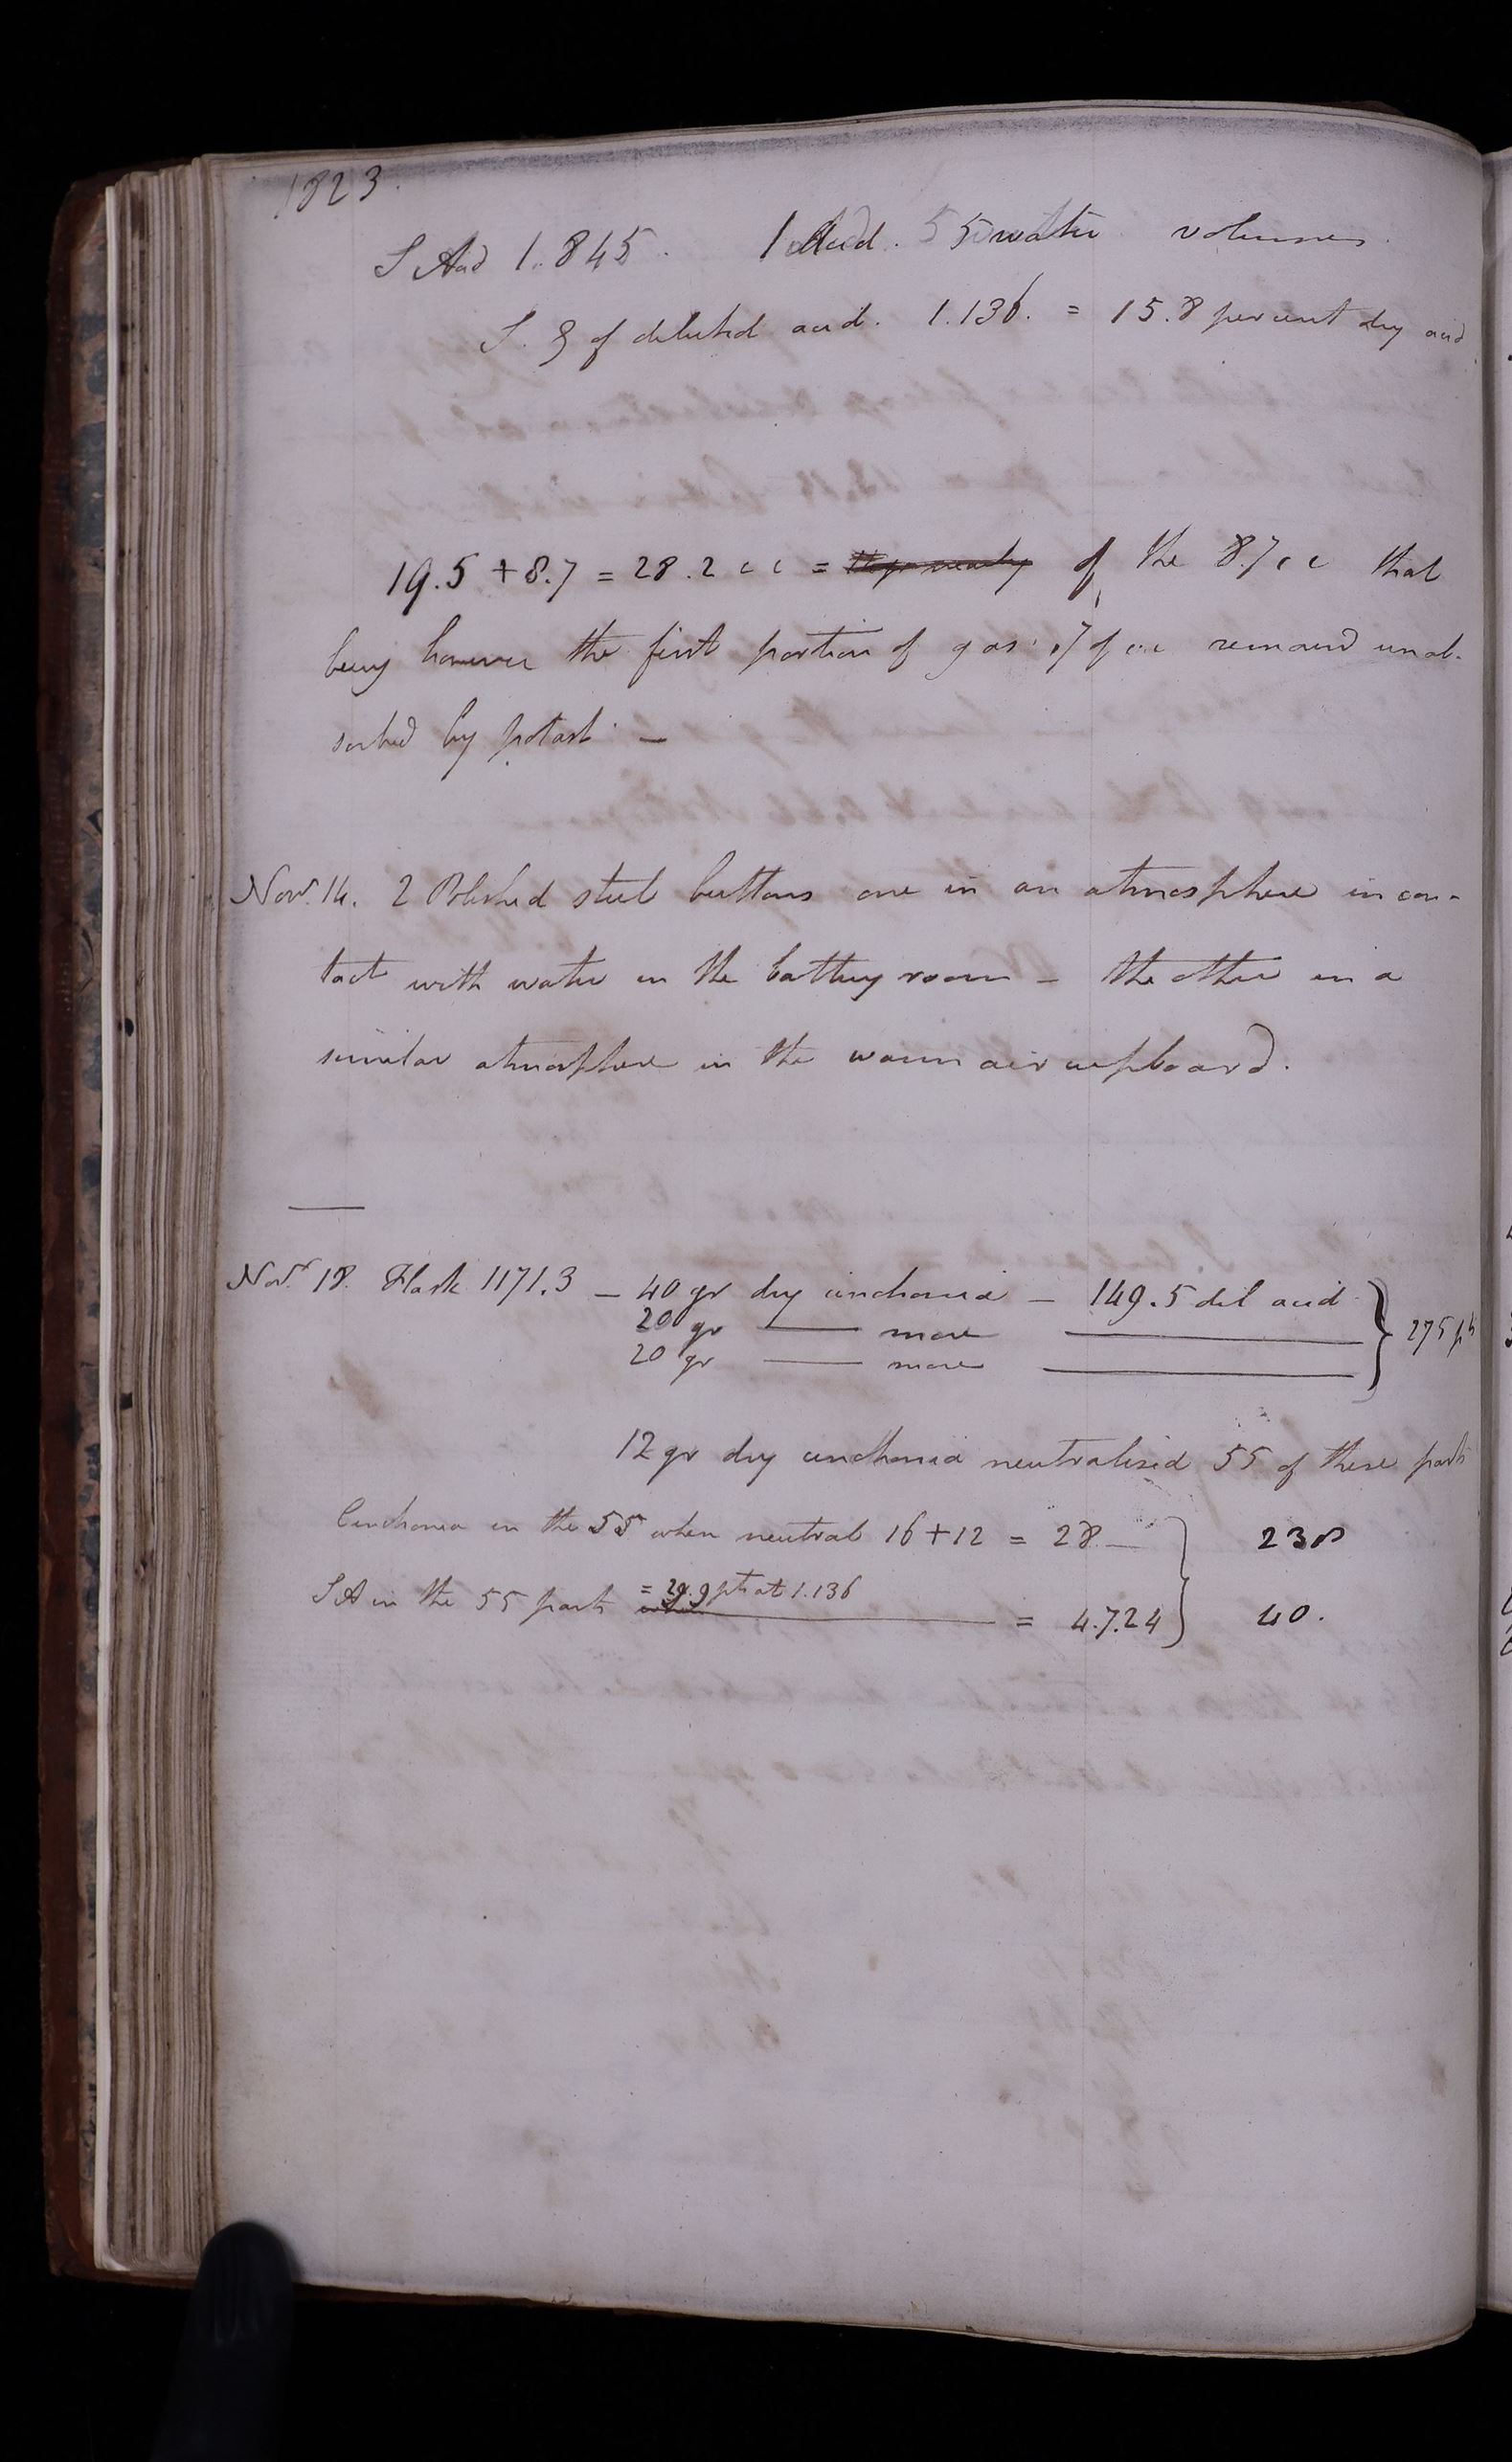 1823.
S Acid 1.845. 1 Acid. 5 water volumes.
S. G of diluted acid. 1.136. = 15.8 per cent dry acid
19.5 + 8.7 = 28.2 c c = nearly of the 8.7 c c that
being however the first portion of gas .7 of c.c remained unab-
sorbed by potash. —
Novr. 14. 2 Polished steel buttons one in an atmosphere in con-
tact with water in the battery room - the other in a
similar atmosphere in the warm air cupboard.
Novr. 18. Flask 1171.3 — 40 gr dry cinchonia — 149.5 dil acid
20 gr —— more ——
20 gr —— more ——
275 pts
12 gr dry cinchonia neutralised 55 of these parts
Cinchonia in the 55 when neutral 16+12 = 28 — 238
= 29.9 pts at 1.136
S A in the 55 parts when —— = 4.724 40.